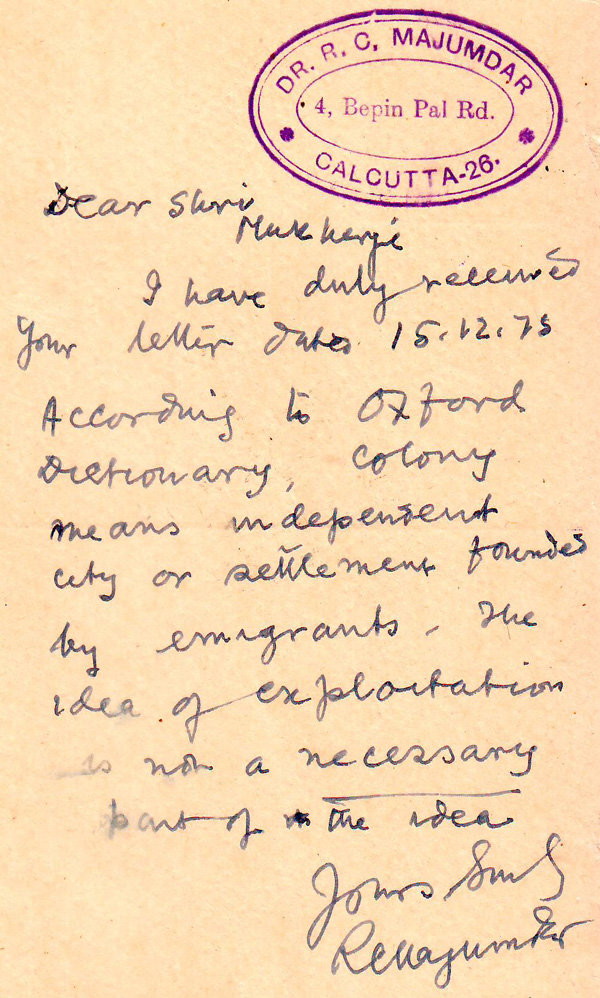 DR. R. C. MAJUMDAR
4, Bepin Pal Rd.
CALCUTTA-26.
Dear Shri
Mukherji
I have duly received
Your letter dated 15.12.75
According to Oxford
Dictionary, colony
means independent
city or settlement founded
by emigrants. The
idea of exploitation
is not a necessary
part of the idea
Yours
RCMajumdar